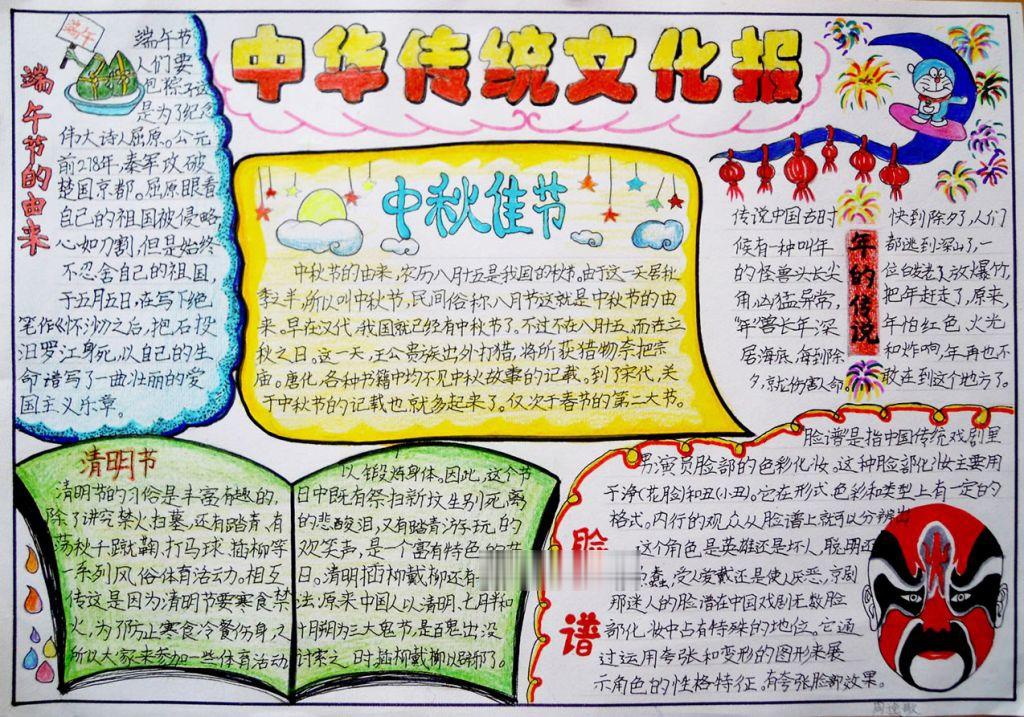 中华传统文化报
端午
端午节的由来
端午节
人们要
包粽子这
是为了纪念
伟大诗人屈原。公元
前278年,秦军攻破
楚国京都。屈原眼看
自己的祖国被侵略
心如刀割,但是始终
不忍舍自己的祖国,
于五月五日,在写下绝
笔作《怀沙》之后,抱石投
汨罗江身死,以自己的生
命谱写了一曲壮丽的爱
国主义乐章。
中秋佳节
中秋节的由来,农历八月十五是我国的秋节。由于这一天居秋
季之半,所以叫中秋节,民间俗称八月节这就是中秋节的由
来。早在汉代,我国就已经有中秋节了。不过不在八月十五,而在立
秋之日。这一天,王公贵族出外打猎,将所获猎物奉把宗
庙。唐化,各种书籍中均不见中秋故事的记载。到了宋代,关
于中秋节的记载也就多起来了。仅次于春节的第二大节。
年的传说
传说中国古时
候有一种叫年
的怪兽头长尖
角,凶猛异常,
"年"兽长年深
居海底,每到除
夕,就伤害人命。
快到除夕了,人们
都逃到深山了,一
位白发老人放爆竹,
把年赶走了,原来,
年怕红色、火光
和炸响,年再也不
敢在到这个地方了。
清明节
清明节的习俗是丰富有趣的,
除了讲究禁火扫墓,还有踏青、荡
秋千、蹴鞠、打马球、插柳等一
系列风俗体育活动。相互
传这是因为清明节要寒食禁
火,为了防止寒食冷餐伤身,
所以大家来参加一些体育活动
以锻炼身体。因此,这个节
日中既有祭扫新坟生别死离
的悲酸泪,又有踏青游玩的
欢笑声,是一个富有特色的节
日。清明插柳戴柳还有一
法:原来中国人以清明、七月半和
十月朔为三大鬼节,是百鬼出没
讨索之时插柳戴柳以辟邪了。
脸谱
脸谱"是指中国传统戏剧里
男演员脸部的色彩化妆。这种脸部化妆主要用
于净(花脸)和丑(小丑)。它在形式、色彩和类型上有一定的
格式。内行的观众从脸谱上就可以分辨出
这个角色,是英雄还是坏人,聪明还
蠢,受人爱戴还是使人厌恶,京剧
那迷人的脸谱在中国戏剧无数脸
部化妆中占有特殊的地位。它通
过运用夸张和变形的图形来展
示角色的性格特征。有夸张脸部效果。